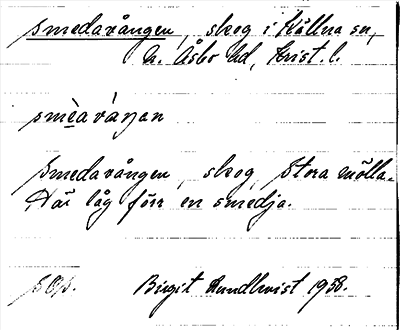 Smedavången, skog i Källna sn,
N. Åsbo hd, Krist. l.
smèavánan
Smedavången, skog, Stora mölla.
Här låg förr en smedja.
Birgit Lundkvist 1958.